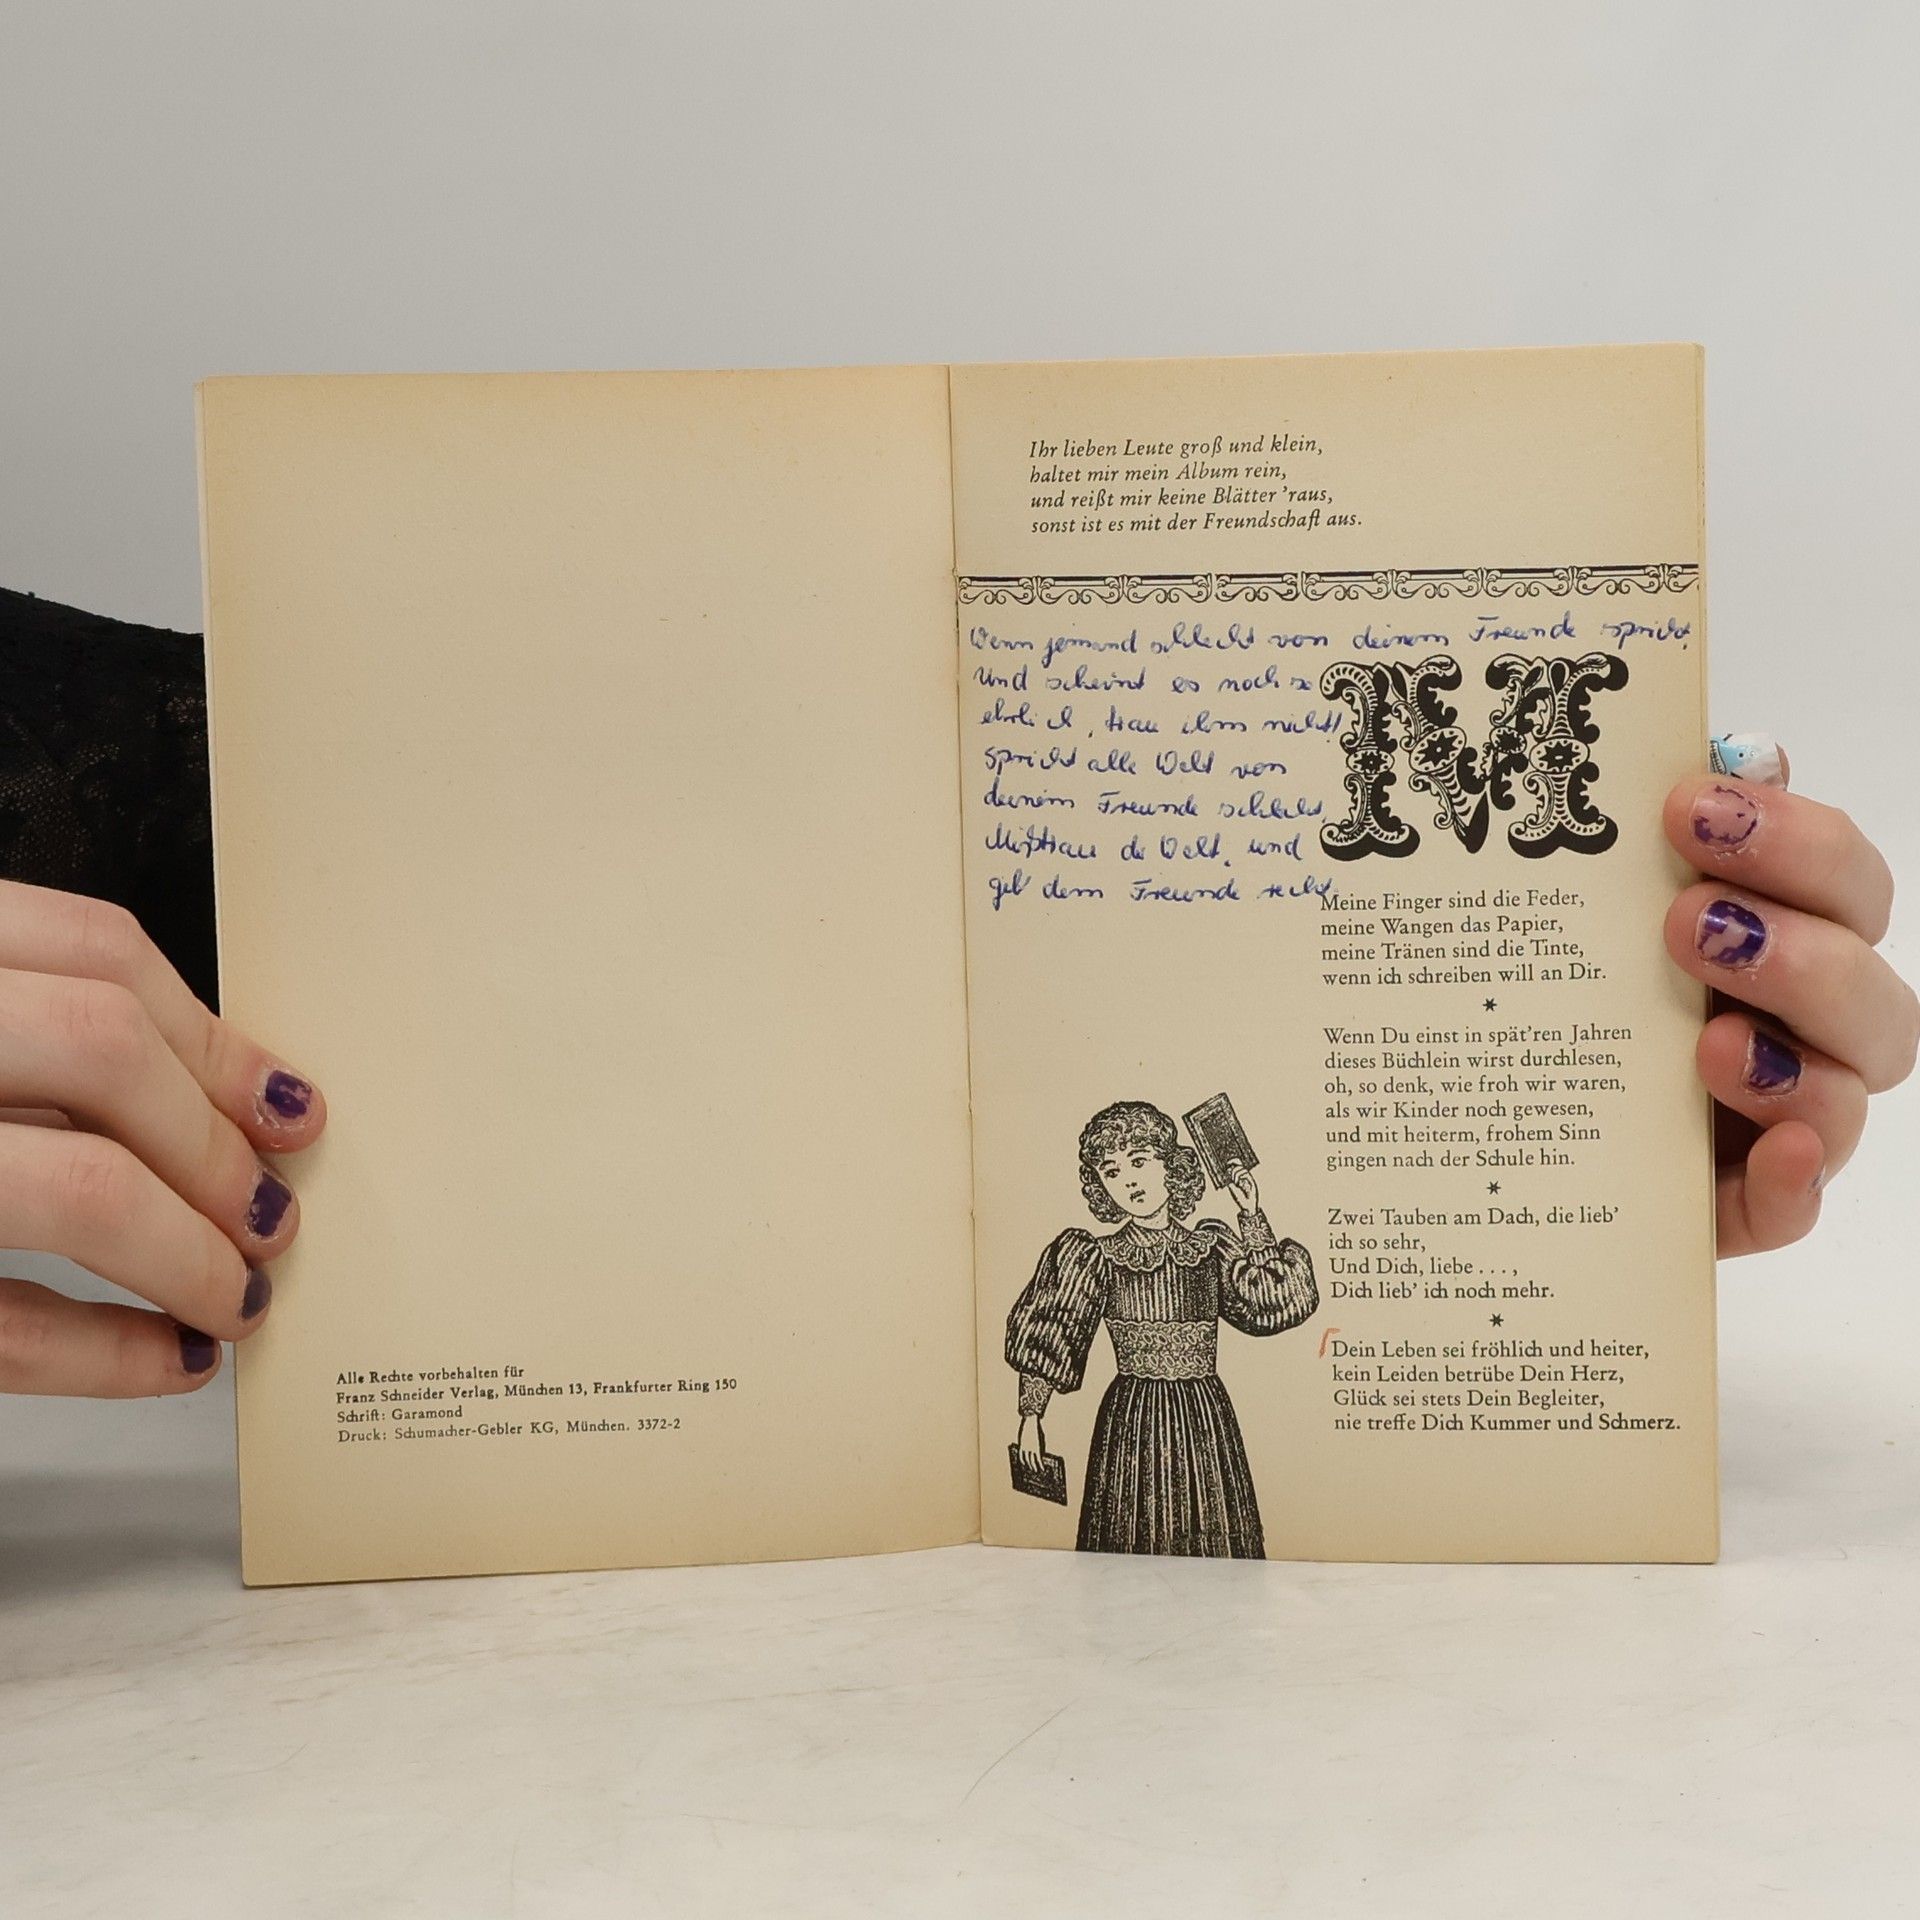 Alle Rechte vorbehalten für
Franz Schneider Verlag, München 13, Frankfurter Ring 150
Schrift: Garamond
Druck: Schumacher-Gebler KG, München. 3372-2
Ihr lieben Leute groß und klein,
haltet mir mein Album rein,
und reißt mir keine Blätter ’raus,
sonst ist es mit der Freundschaft aus.
Wenn jemand schlecht von deinem Freunde spricht,
Und scheint es noch so
ehrlich, trau ihm nicht!
Spricht alle Welt von
deinem Freunde schlecht,
Mißtrau de Welt, und
gib' dem Freunde recht.
M
Meine Finger sind die Feder,
meine Wangen das Papier,
meine Tränen sind die Tinte,
wenn ich schreiben will an Dir.
*
Wenn Du einst in spät’ren Jahren
dieses Büchlein wirst durchlesen,
oh, so denk, wie froh wir waren,
als wir Kinder noch gewesen,
und mit heiterm, frohem Sinn
gingen nach der Schule hin.
*
Zwei Tauben am Dach, die lieb’
ich so sehr,
Und Dich, liebe . . . ,
Dich lieb’ ich noch mehr.
*
Dein Leben sei fröhlich und heiter,
kein Leiden betrübe Dein Herz,
Glück sei stets Dein Begleiter,
nie treffe Dich Kummer und Schmerz.